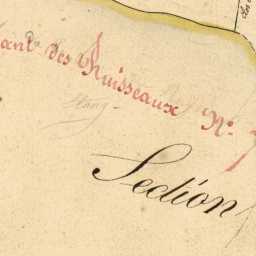 des Ruisseaux N°. 7
Etang
Section